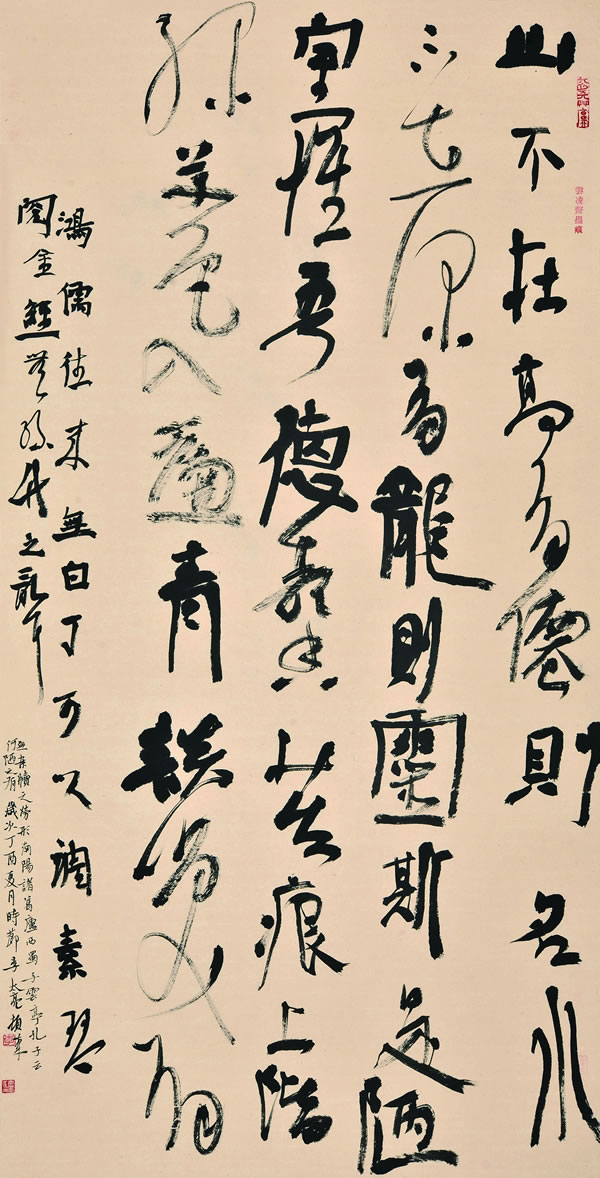 山不在高有僊則名水
不在深有龍則靈斯是陋
室惟吾德馨苔痕上階
綠草色入簾青談笑有
鴻儒往來無白丁可以調素琴
閱金經無絲竹之亂耳
無案牘之勞形南陽諸葛廬西蜀子雲亭孔子云
何陋之有歲次丁酉夏月時節